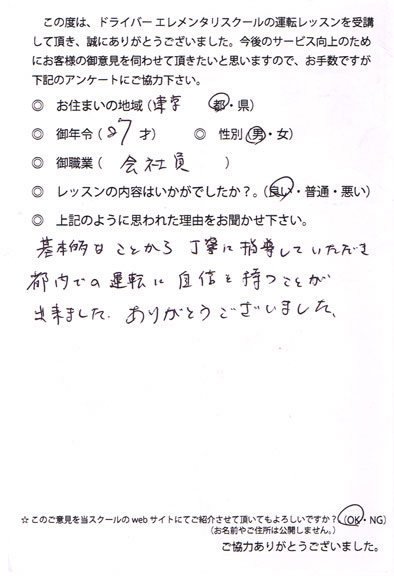 この度は、ドライバー エレメンタリスクールの運転レッスンを受講
して頂き、誠にありがとうございました。今後のサービス向上のため
にお客様の御意見を伺わせて頂きたいと思いますので、お手数ですが
下記のアンケートにご協力下さい。
◎ お住まいの地域（東京 都・県）
◎ 御年令（27 才） ◎ 性別（男・女）
◎ 御職業（ 会社員 ）
◎ レッスンの内容はいかがでしたか？。（良い・普通・悪い）
◎ 上記のように思われた理由をお聞かせ下さい。
基本的なことから丁寧に指導していただき
都内での運転に自信を持つことが
出来ました。ありがとうございました。
☆このご意見を当スクールの web サイトにてご紹介させて頂いてもよろしいですか？（OK・NG）
（お名前やご住所は公開しません。）
ご協力ありがとうございました。